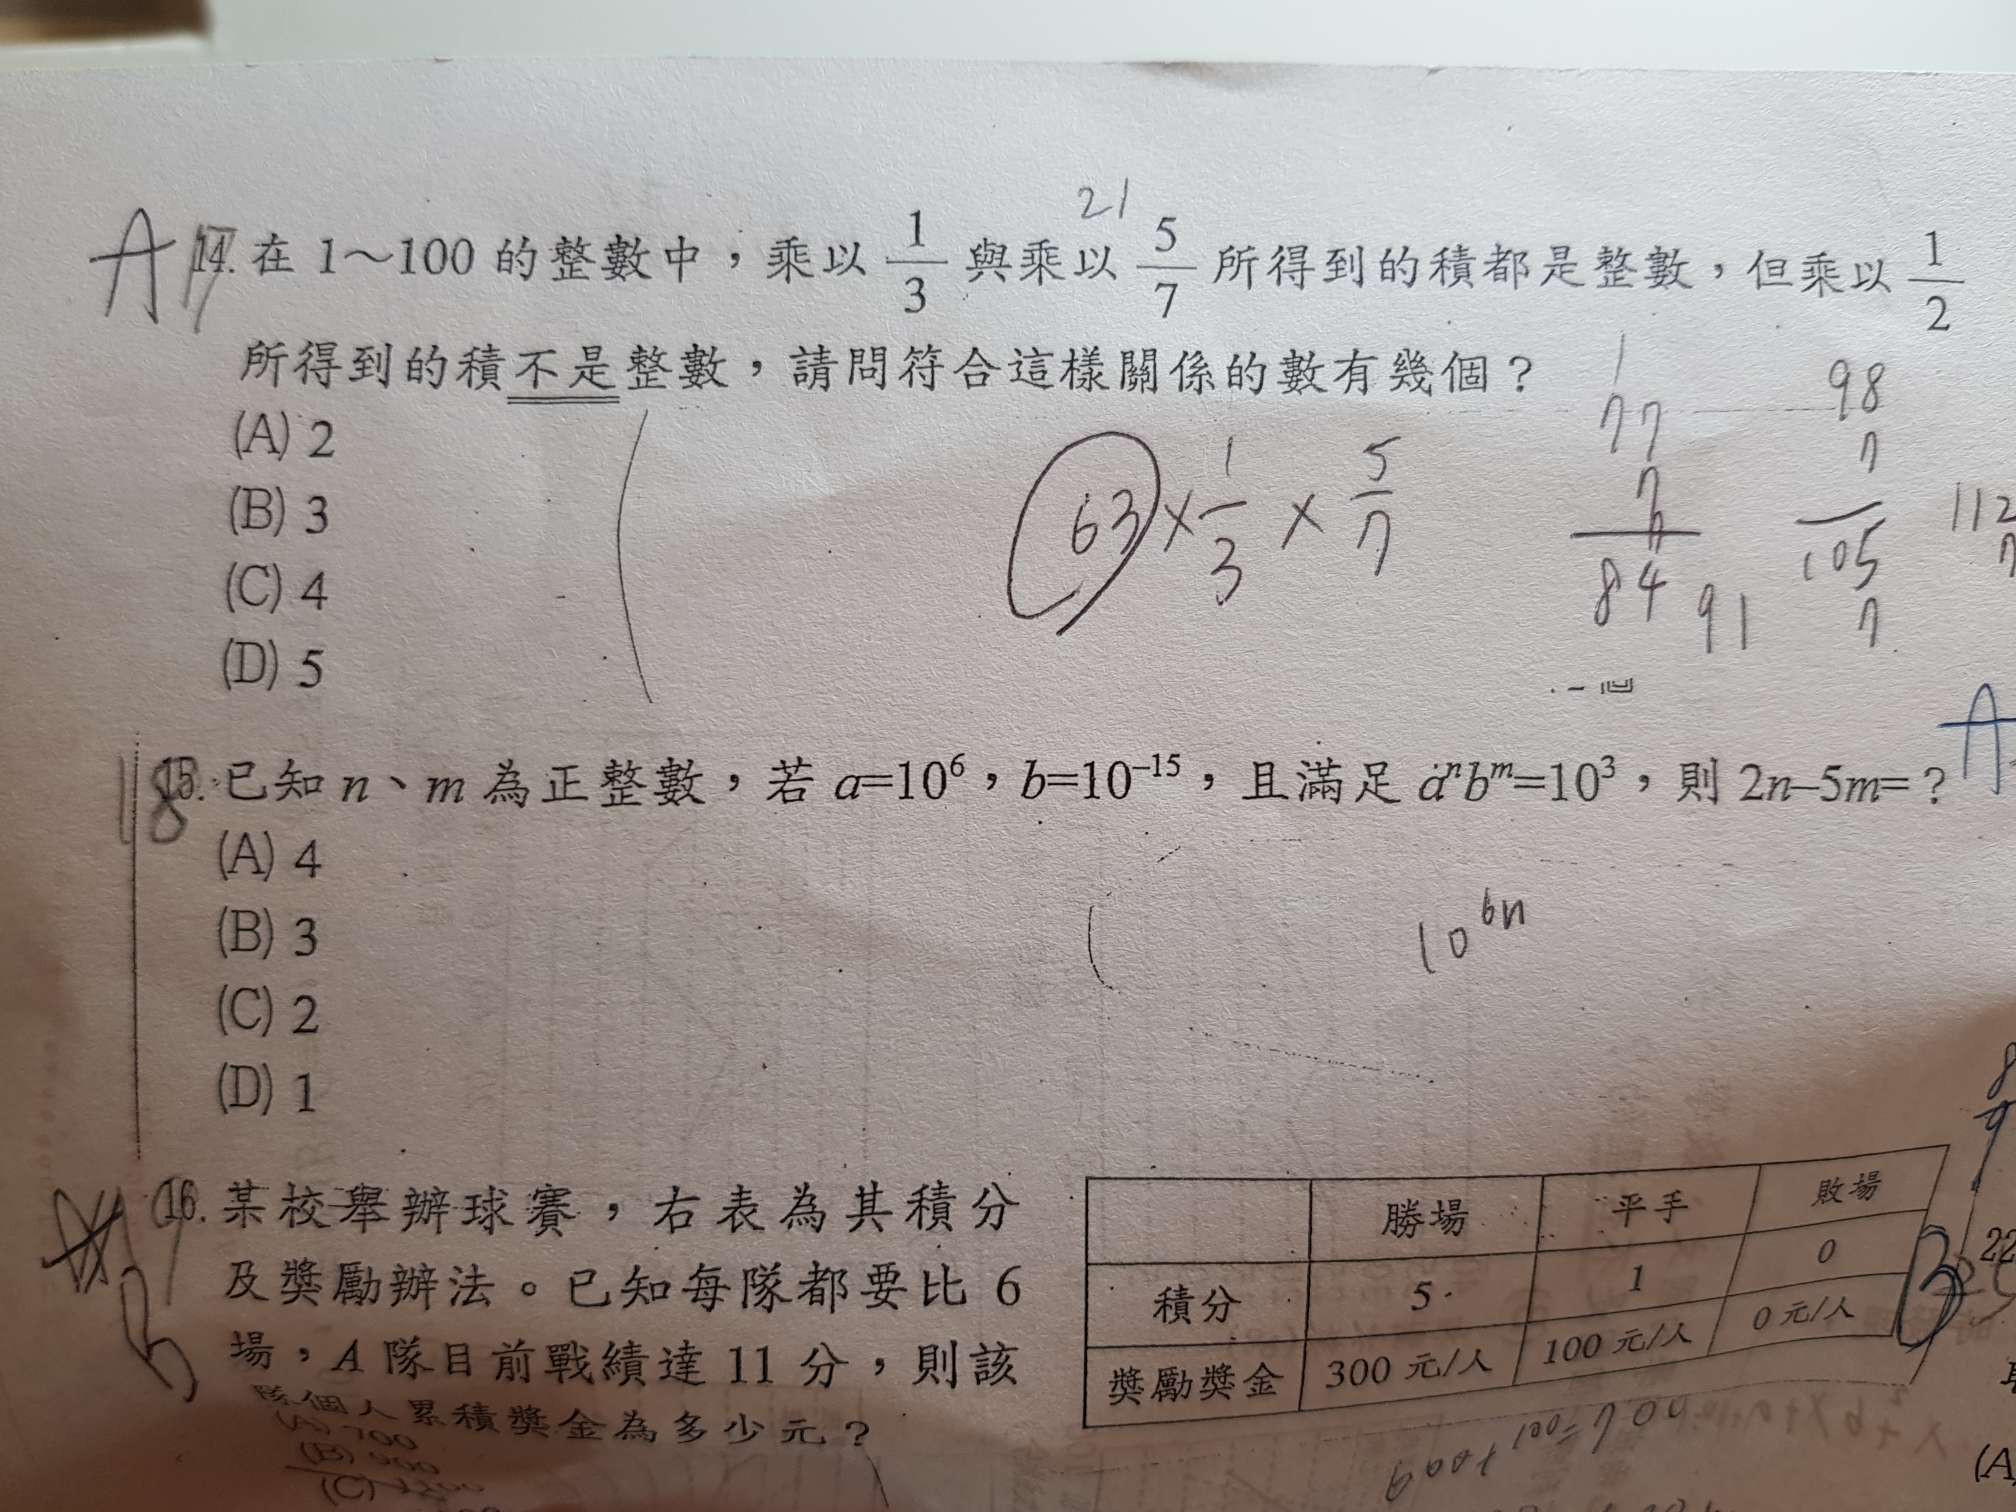 A 17 14. 在 1～100 的整數中，乘以 1/3 與乘以 5/7 所得到的積都是整數，但乘以 1/2
21
所得到的積不是整數，請問符合這樣關係的數有幾個？
(A) 2
(B) 3
(C) 4
(D) 5
63 × 1/3 × 5/7
1
77
7
84
91
98
7
105
7
112
7
18 15. 已知 n、m 為正整數，若 a=10⁶，b=10⁻¹⁵，且滿足 aⁿbᵐ=10³，則 2n–5m=？
A
(A) 4
(B) 3
(C) 2
(D) 1
10⁶ⁿ
16. 某校舉辦球賽，右表為其積分
及獎勵辦法。已知每隊都要比 6
場，A 隊目前戰績達 11 分，則該
隊個人累積獎金為多少元？
(A) 700
(B) 900
(C)
勝場 平手 敗場
積分 5 1 0
獎勵獎金 300 元/人 100 元/人 0 元/人
B
8
9
22
(A
600+100=700